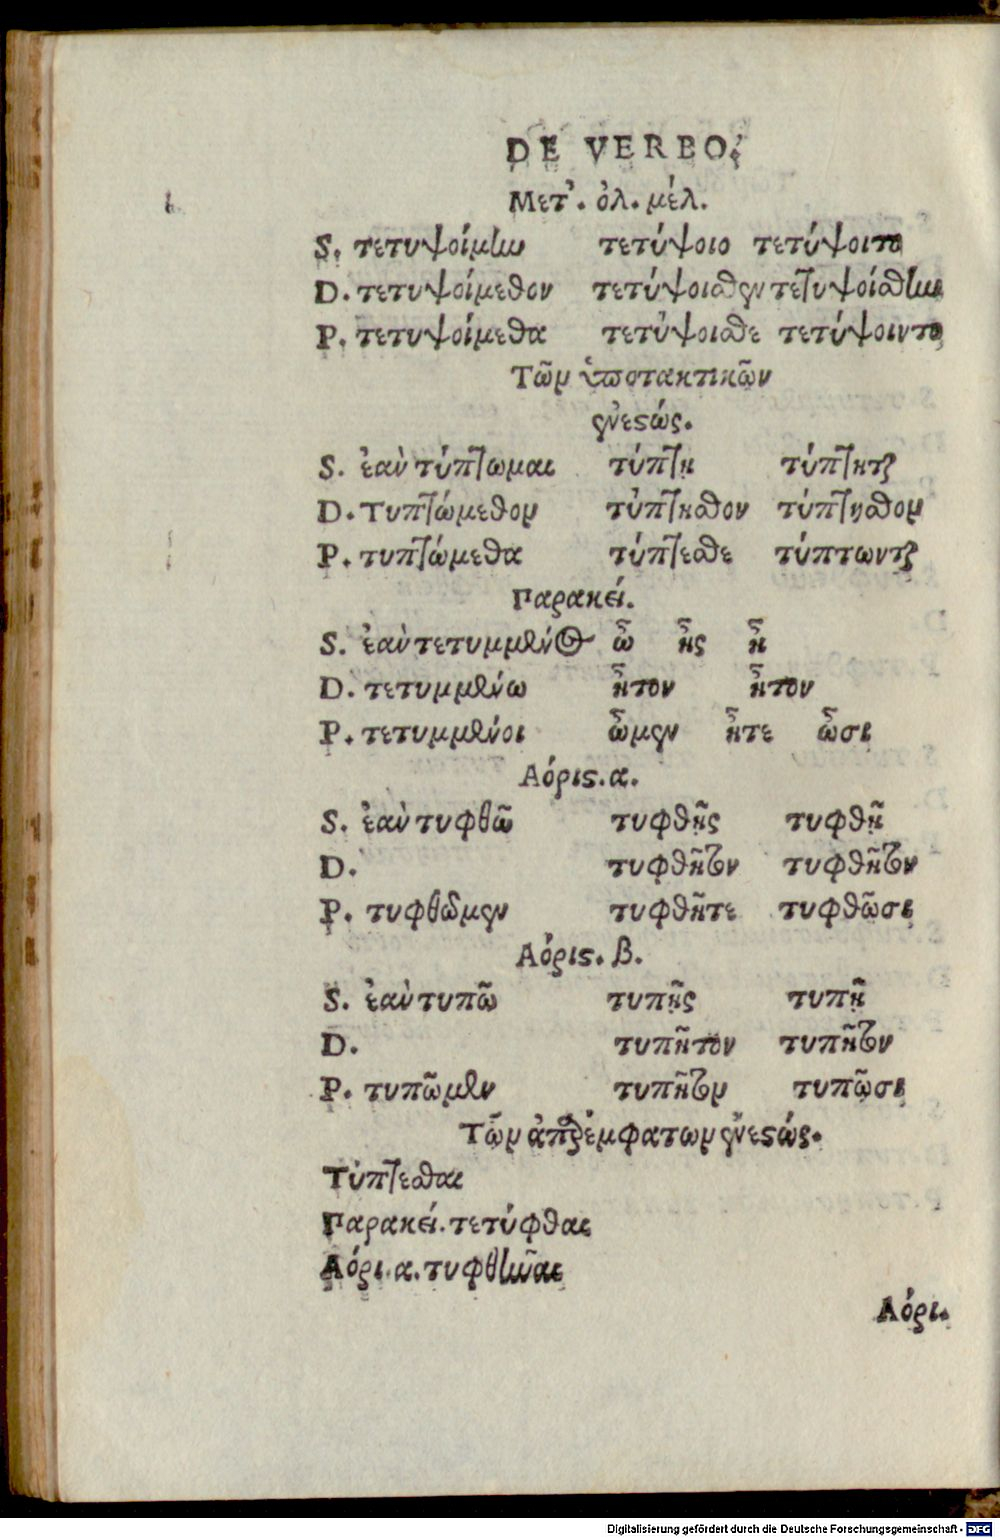 DE VERBO.
Μετ'. ὀλ. μέλ.
S. τετυψοίμην τετύψοιο τετύψοιτο
D. τετυψοίμεθον τετύψοισθον τετυψοίσθην
P. τετυψοίμεθα τετύψοισθε τετύψοιντο
Τῶν ὑποτακτικῶν
ἐνεστώς.
S. ἐὰν τύπτωμαι τύπτῃ τύπτηται
D. τυπτώμεθον τύπτησθον τύπτησθον
P. τυπτώμεθα τύπτεσθε τύπτωνται
Παρακεί.
S. ἐὰν τετυμμένος ὦ ᾖς ᾖ
D. τετυμμένω ἦτον ἦτον
P. τετυμμένοι ὦμεν ἦτε ὦσι
Αόρις. α.
S. ἐὰν τυφθῶ τυφθῇς τυφθῇ
D. τυφθῆτον τυφθῆτον
P. τυφθῶμεν τυφθῆτε τυφθῶσι
Αόρις. β.
S. ἐὰν τυπῶ τυπῇς τυπῇ
D. τυπῆτον τυπῆτον
P. τυπῶμεν τυπῆτον τυπῶσι
Τῶν ἀπαρέμφατων ἐνεστώς.
Τύπτεσθαι
Παρακεί. τετύφθαι
Αόρι. α. τυφθῆναι
Αόρι.
Digitalisierung gefördert durch die Deutsche Forschungsgemeinschaft - DFG